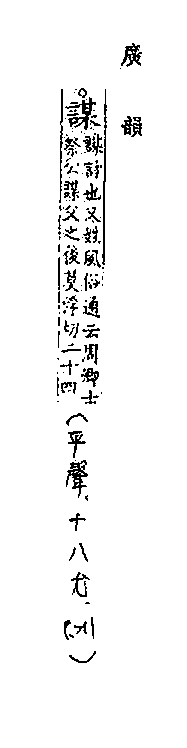 廣韻
謀
謀計也又姓風俗通云周卿士
祭公謀父之後莫浮切二十四
(平聲.十八尤.)